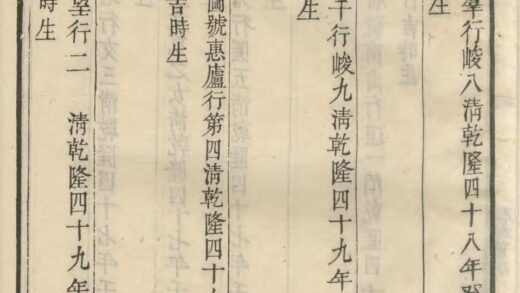 行峻八清乾隆四十八年
生
行峻九清乾隆四十九年
生
圖號惠廬行第四清乾隆四十
吉時生
行二 清乾隆四十九年
時生